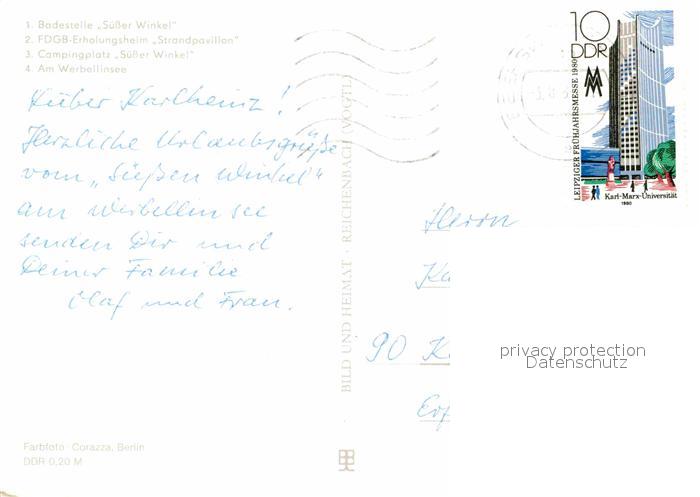 1. Badestelle „Süßer Winkel"
2. FDGB-Erholungsheim „Strandpavillon"
3. Campingplatz „Süßer Winkel"
4. Am Werbellinsee
Lieber Karlheinz!
Herzliche Urlaubsgrüße
vom „Süßen Winkel"
am Werbellinsee
senden Dir und
Deiner Familie
Olaf und Frau.
BILD UND HEIMAT · REICHENBACH (VOGTL)
10
DDR
LEIPZIGER FRÜHJAHRSMESSE 1980
Karl-Marx-Universität
1980
Herrn
Ka
90 K.
Erf
privacy protection
Datenschutz
Farbfoto: Corazza, Berlin
DDR 0,20 M